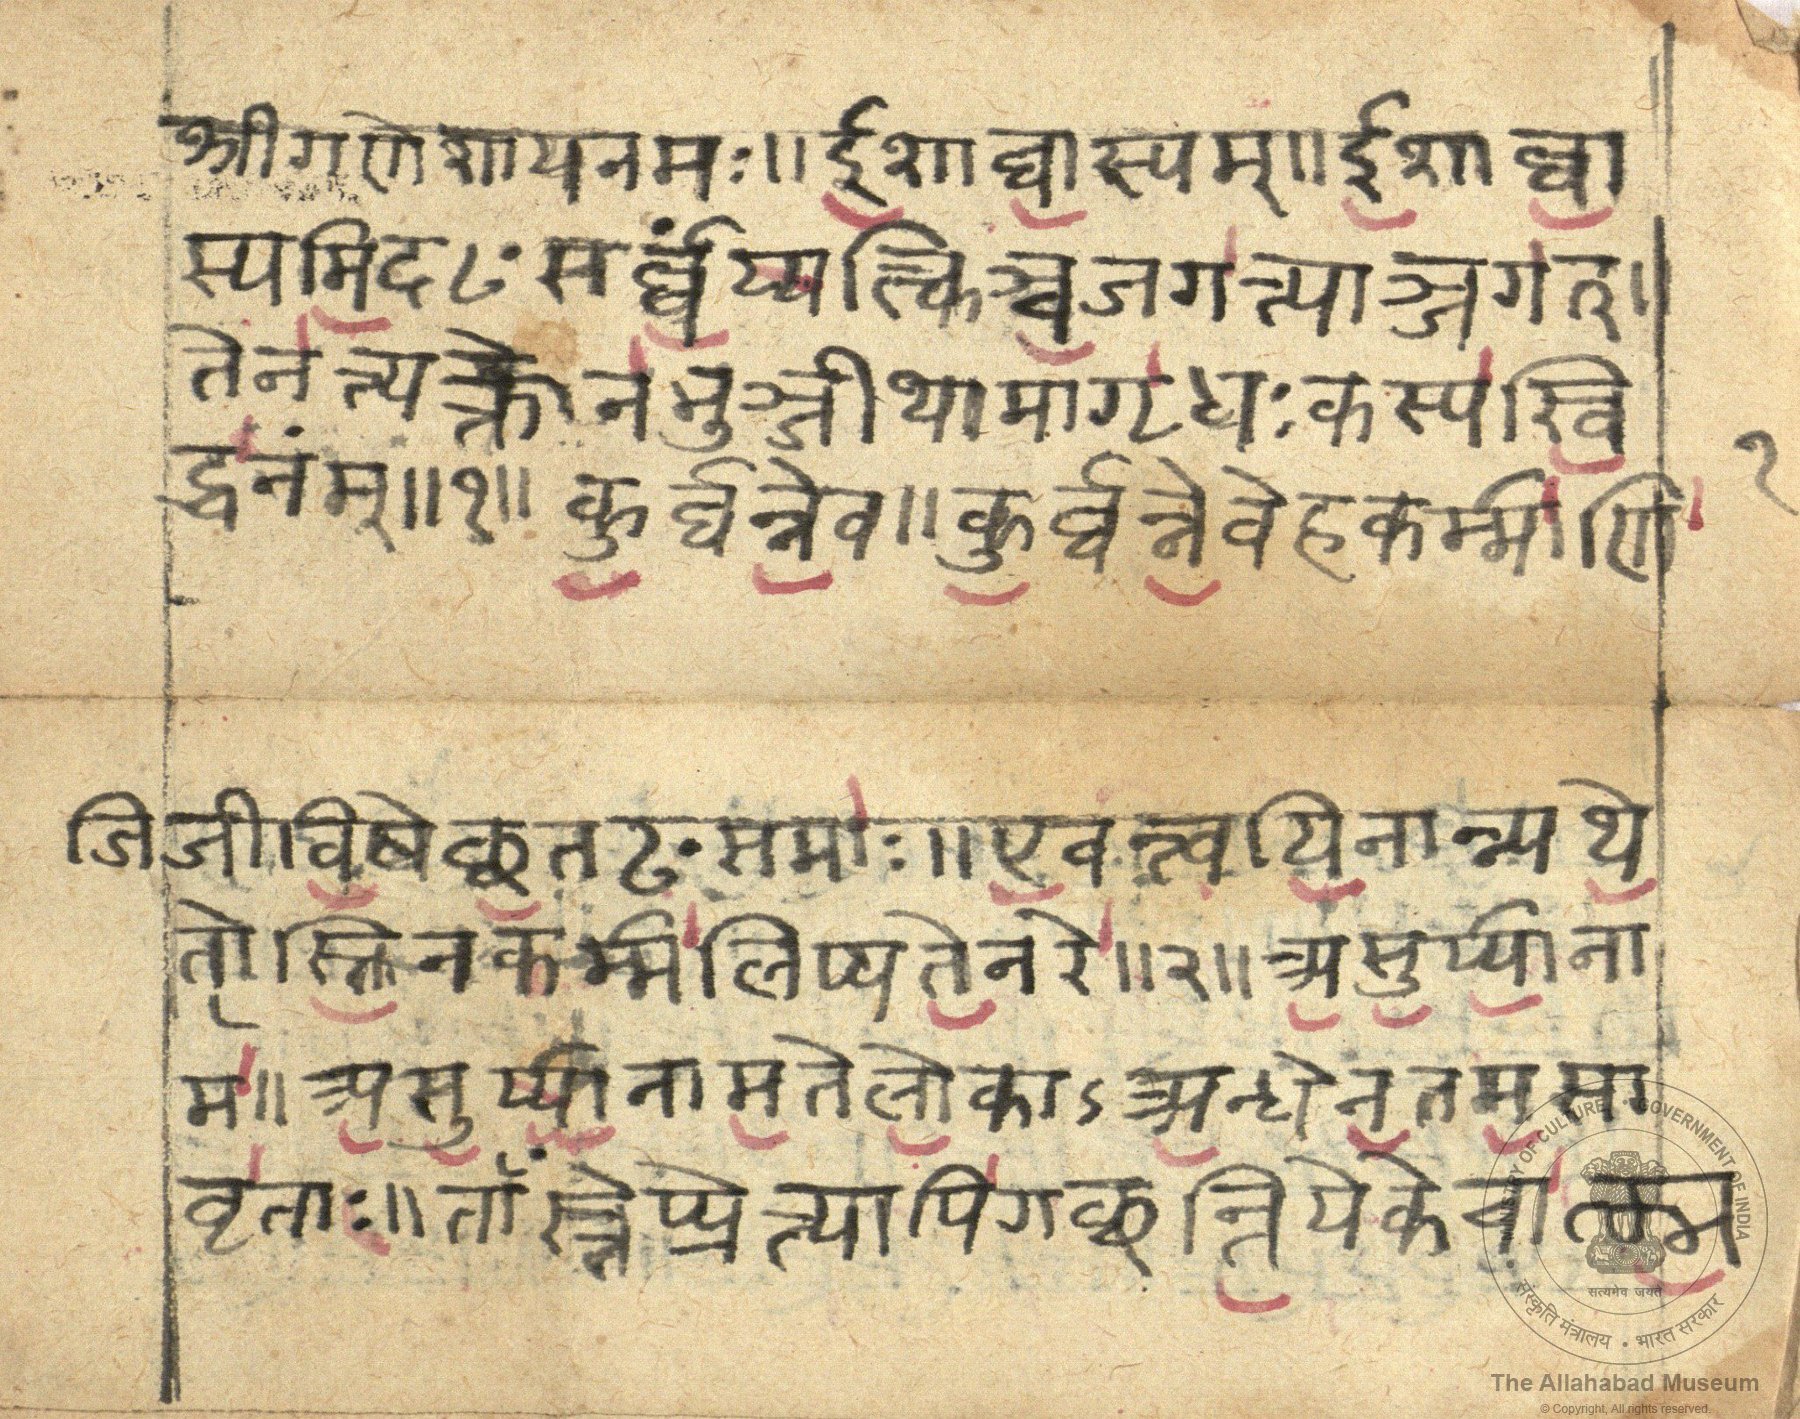 श्रीगणेशायनमः॥ ईशाव्वास्यम्॥ ईशाव्वा
स्यमिदᳪसर्व्वंय्यत्किञ्चजगत्त्याञ्जगत्॥
तेनत्त्यक्तेनभुञ्जीथामागृधःकस्यस्वि
द्धनंम्॥१॥ कुर्व्वन्नेव॥ कुर्व्वन्नेवेहकर्म्माणि
१
जिजीविषेच्छतᳪसमाः॥ एवन्त्वयिनान्न्यथे
तोस्तिनकर्म्मलिप्यतेनरे॥२॥ असुर्य्याना
म॥ असुर्य्यानामतेलोकाऽअन्धेनतमसा
वृताः॥ ताँस्तेप्प्रेत्यापिगच्छन्तियेकेचात्मम
The Allahabad Museum
© Copyright, All rights reserved.
MINISTRY OF CULTURE GOVERNMENT OF INDIA
सत्यमेव जयते
संस्कृति मंत्रालय • भारत सरकार